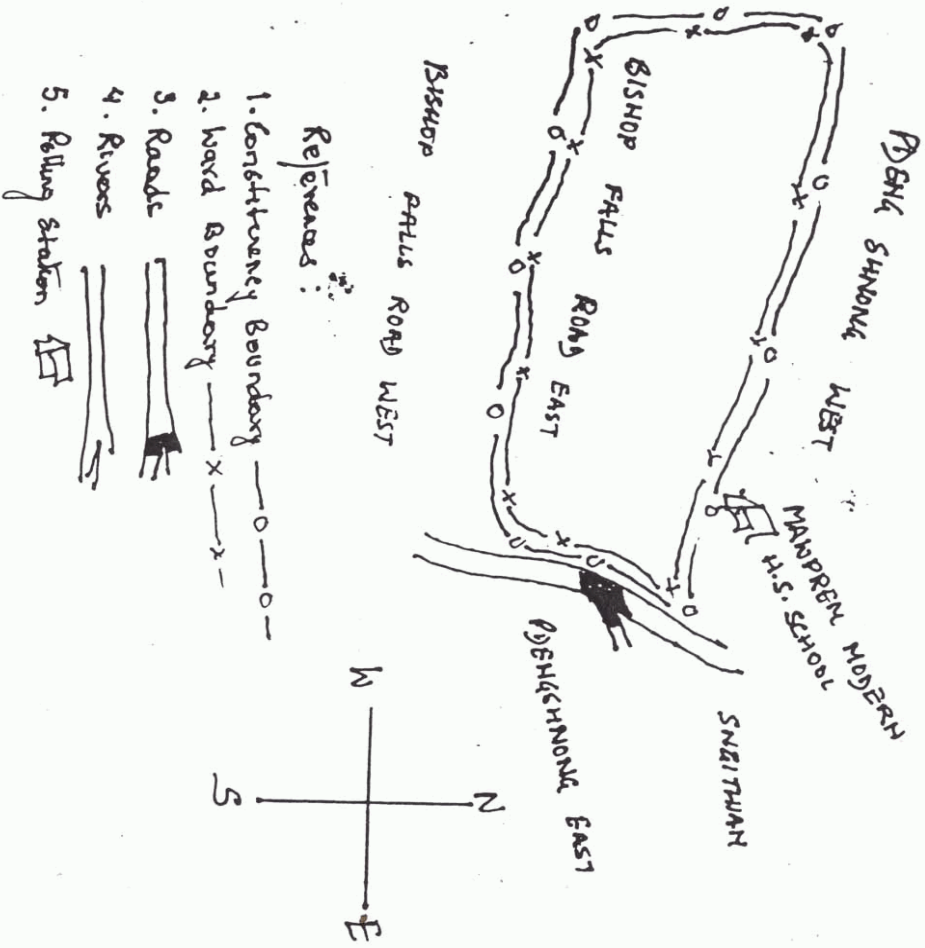 PDENG SHNONG WEST
MAWPREM MODERN
H.S. SCHOOL
SNEITHAM
BISHOP FALLS ROAD EAST
PDENGSHNONG EAST
BISHOP FALLS ROAD WEST
References:
1. Constituency Boundary —o—o—
2. Ward Boundary —x—x—
3. Roads
4. Rivers
5. Polling Station
W
N
S
E